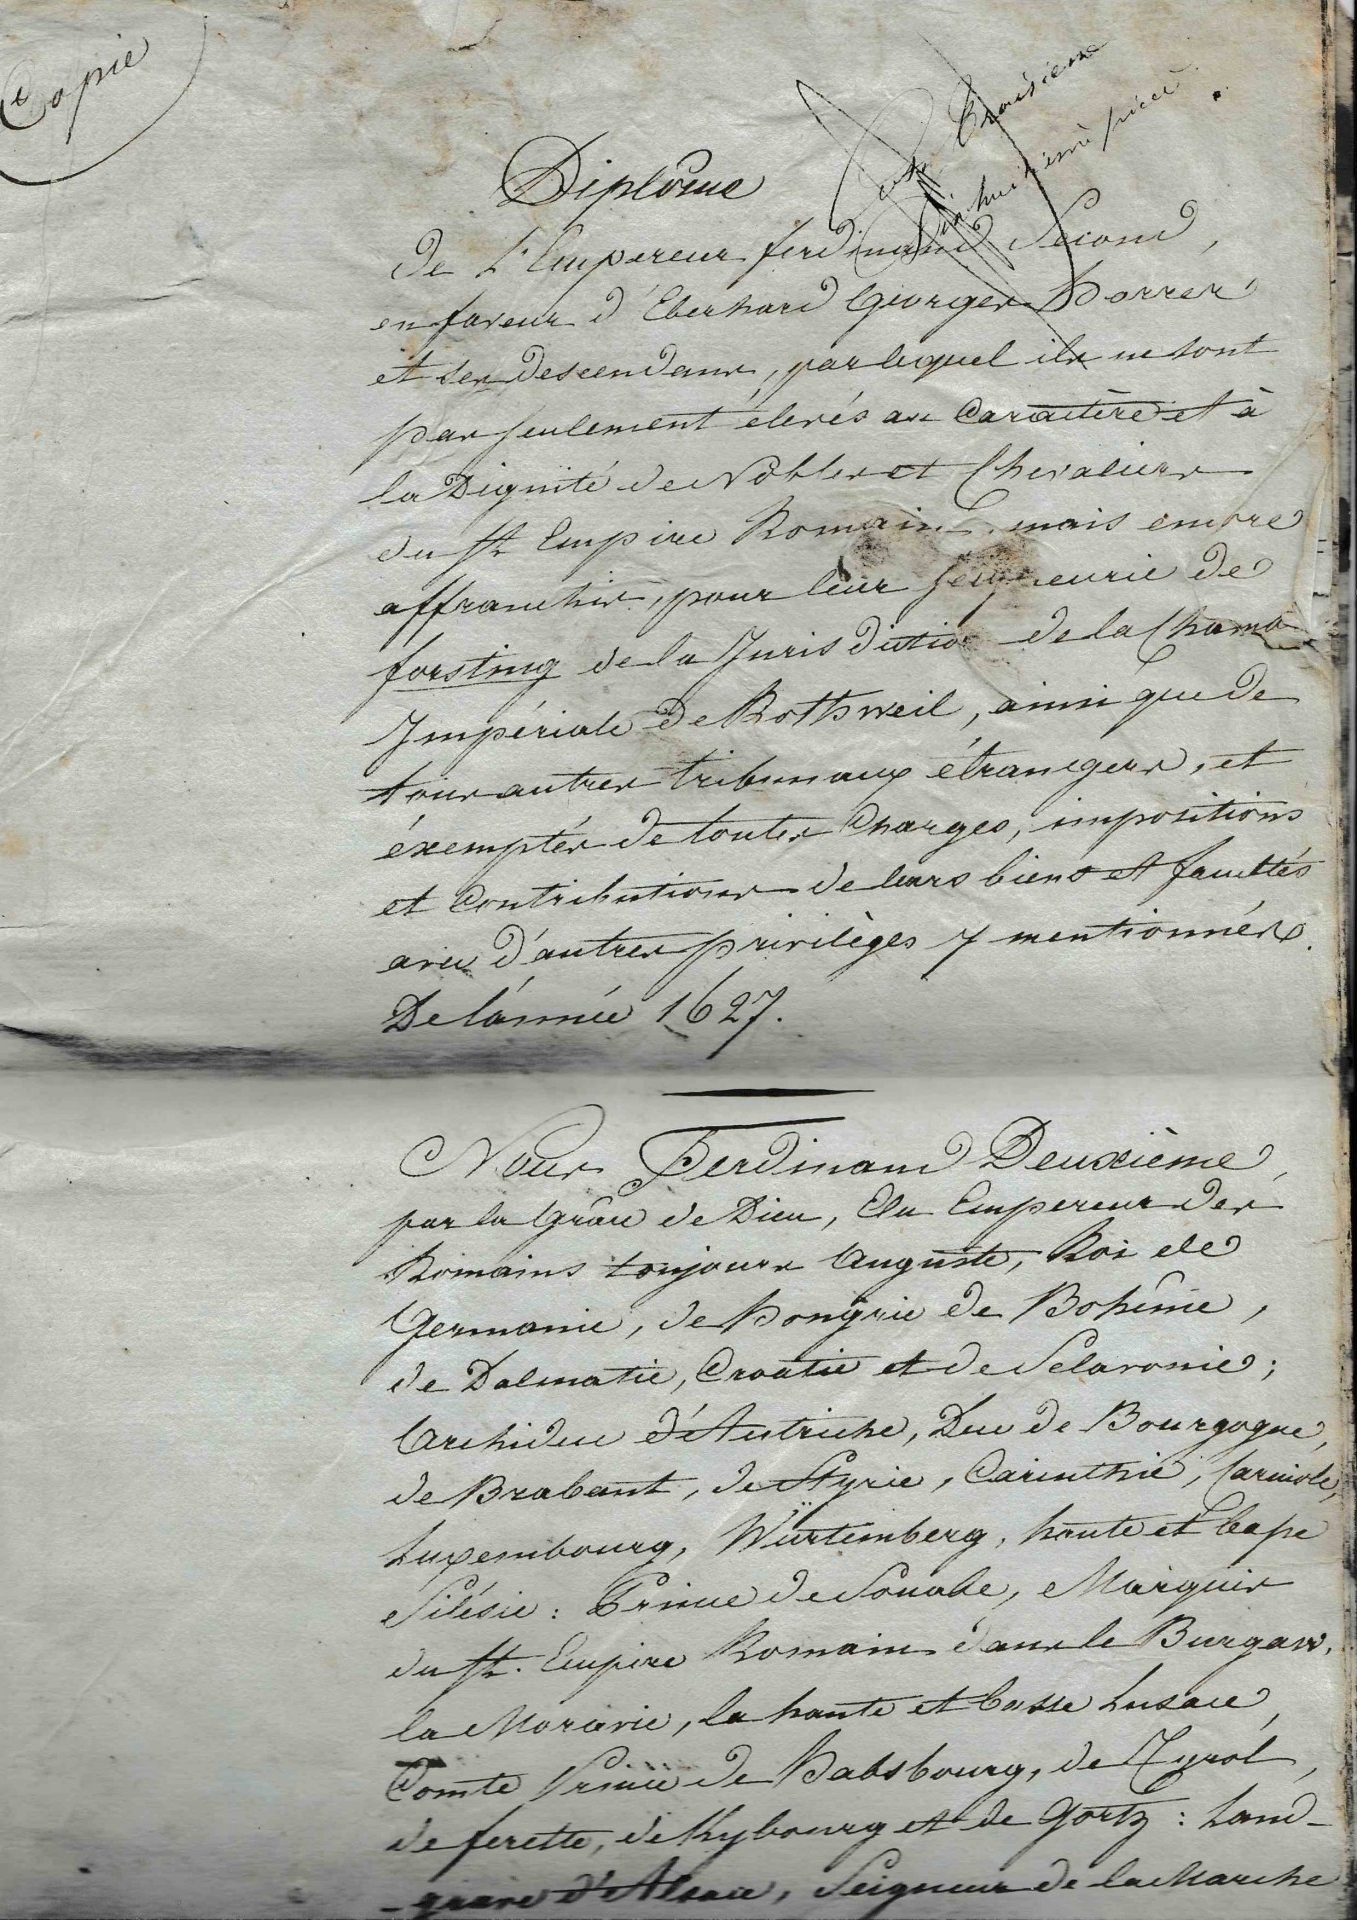 Copie
troisième
dix huitième pièce
Diplôme
de L'Empereur ferdinand Second,
en faveur d'Eberhard George Horrer
et ses descendans, par lequel ils ne sont
pas seulement élevés au Caractère et à
la Dignité de Nobles et Chevaliers
du St. Empire Romain, mais encore
affranchis, pour leur seigneurie de
forsting de la Jurisdiction de la Chamb
Impériale de Rothweil, ainsi que de
tous autres tribunaux étrangers, et
éxemptés de toutes Charges, impositions
et Contributions de leurs biens et facultés
avec d'autres privilèges y mentionnés.
De l'année 1627.
Nous Ferdinand Deuxième,
par la Grâce de Dieu, Elu Empereur des
Romains toujours Auguste, Roi de
Germanie, de Hongrie de Bohême,
de Dalmatie, Croatie et de Sclavonie;
Archiduc d'Autriche, Duc de Bourgogne,
de Brabant, de Styrie, Carinthie, Carniole,
Luxembourg, Würtemberg, haute et basse
Silésie: Prince de Souabe, Marquis
du St. Empire Romain dans le Burgaw,
la Moravie, la haute et basse Lusace,
Comte Prince de Habsbourg, de Tyrol,
de ferette, de Kybourg et de Gortz: Land-
-grave d'Alsace, Seigneur de la Marche